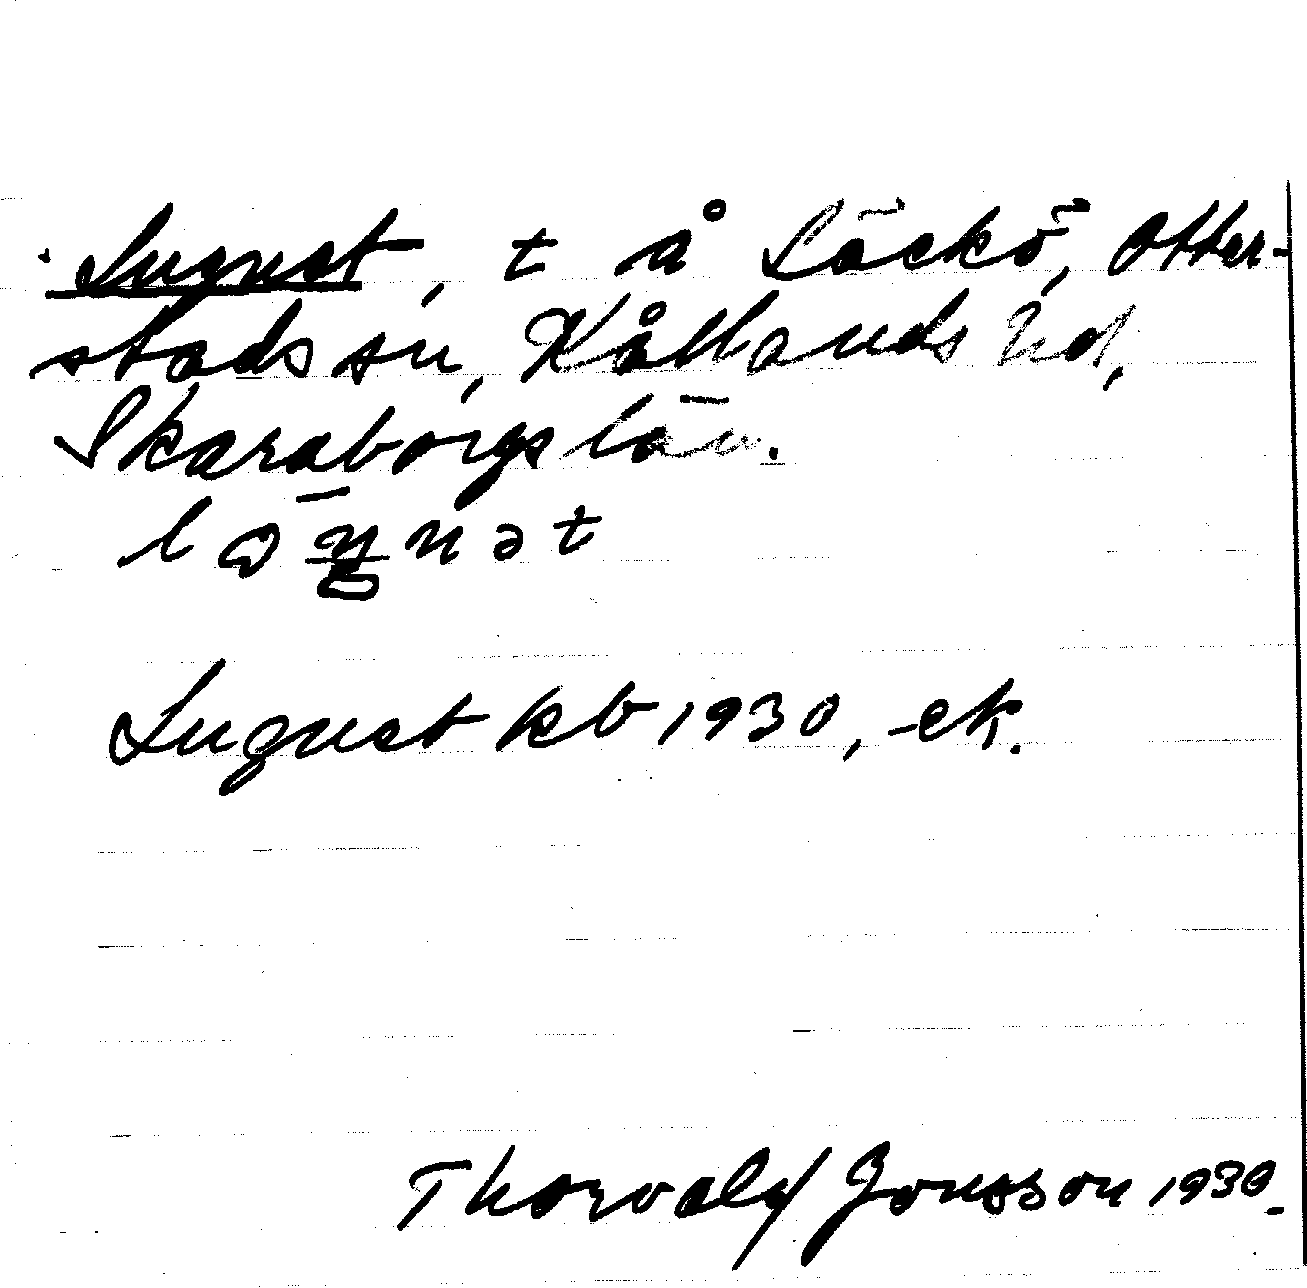 Lugnet, t å Läckö, Otter-
stads sn, Kållands hd,
Skaraborgs län.
Lugnet kb 1930, ek.
Thorvald Jonsson 1930.